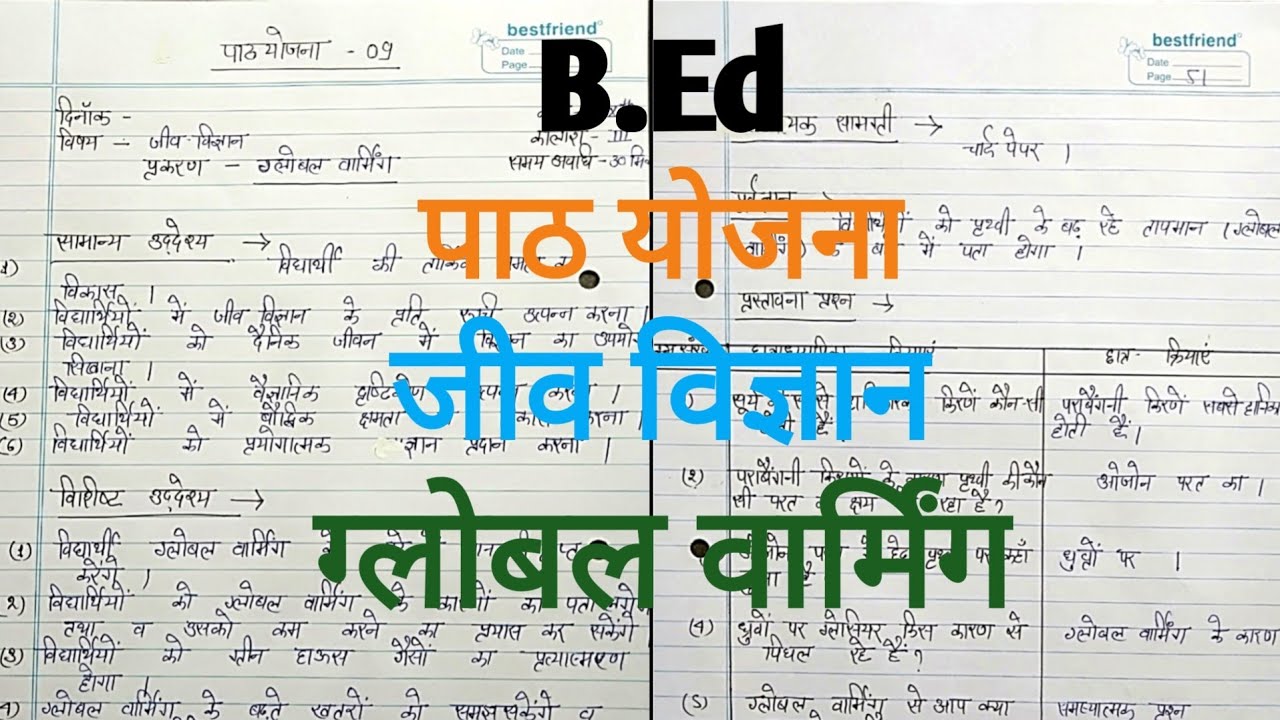 bestfriend
Date
Page
पाठ योजना - 09
दिनॉक -
विषय - जीव-विज्ञान
कालांश - III
प्रकरण - ग्लोबल वार्मिंग
समय अवधि - 30 मि
सामान्य उद्देश्य →
1) विद्यार्थी की तार्किक
विकास ।
(2) विद्यार्थियों में जीव विज्ञान के प्रति रूची उत्पन्न करना ।
(3) विद्यार्थियों को दैनिक जीवन में विज्ञान का उपयोग
सिखाना ।
(4) विद्यार्थियों में वैज्ञानिक दृष्टिकोण करना ।
(5) विद्यार्थियों में बौद्धिक क्षमता करना ।
(6) विद्यार्थियों को प्रयोगात्मक ज्ञान प्रदान करना ।
विशिष्ट उद्देश्य →
(1) विद्यार्थी ग्लोबल वार्मिंग
करेंगे ।
2) विद्यार्थियों को ग्लोबल वार्मिंग के कारणों का पता
तथा व उसको कम करने का प्रयास कर सकेंगे
(3) विद्यार्थियों को ग्रीन हाऊस गैसों का प्रत्यास्मरण
होगा ।
4) ग्लोबल वार्मिंग के बढ़ते खतरों को समझ सकेंगे व
B.Ed
पाठ योजना
जीव विज्ञान
ग्लोबल वार्मिंग
bestfriend
Date
Page 51
सामग्री →
चार्ट पेपर ।
पूर्वज्ञान →
को पृथ्वी के बढ़ रहे तापमान (ग्लोबल
में पता होगा ।
प्रस्तावना प्रश्न →
छात्र - क्रियाएं
सूर्य किरणें कौन-सी
पराबैंगनी किरणें सबसे
होती हैं ।
(2) पराबैंगनी किरणों के पृथ्वी की कौन
सी परत क्षय रहा है ?
ओजोन परत का ।
ध्रुवों पर ।
(4) ध्रुवों पर ग्लेशियर किस कारण से
पिघल रहे हैं ?
ग्लोबल वार्मिंग के कारण
(5) ग्लोबल वार्मिंग से आप क्या
समस्यात्मक प्रश्न